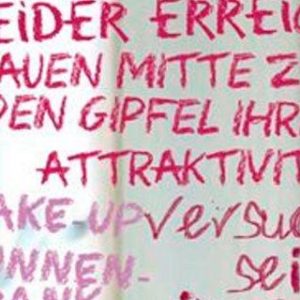 EIDER ERREIC
AUEN MITTE Z
DEN GIPFEL IHR
ATTRAKTIVIT
AKE-UP versuc
NNEN- sei